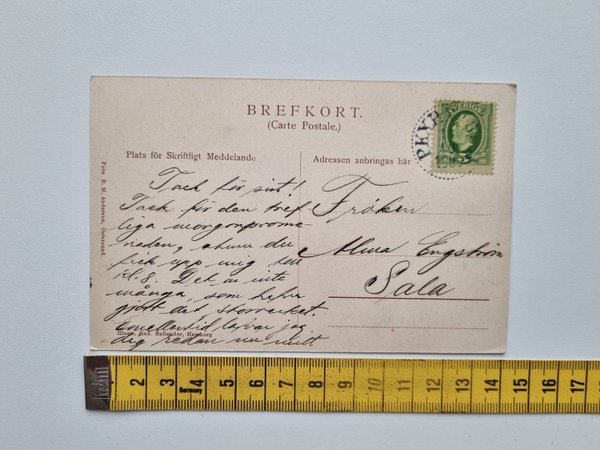 BREFKORT.
(Carte Postale.)
Plats för Skriftligt Meddelande
Adressen anbringas här
Foto E. M. Anderson, Östersund.
PKXP
Tack för sist!
Tack för den tref-
liga morgonprome-
naden, du
fick upp mig
kl. 8. Det är inte
många, som hafva
gjort det storverket.
Emellertid lofvar jag
dig redan nu mitt
Fröken
Alma Engström
Sala
Illustr. Rud. Ballander, Hamburg
2 3 4 5 6 7 8 9 10 11 12 13 14 15 16 17
Germany